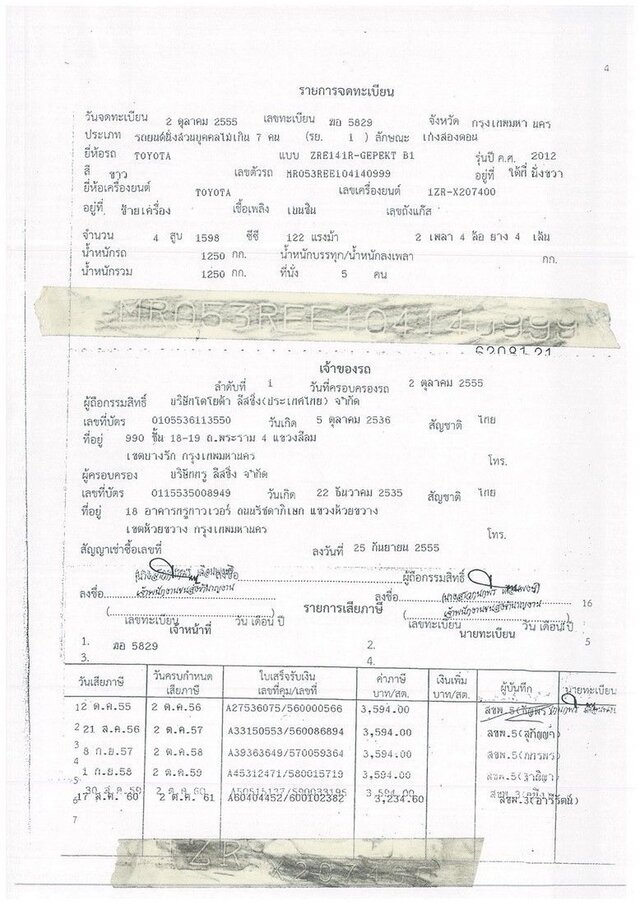 4
รายการจดทะเบียน
วันจดทะเบียน 2 ตุลาคม 2555 เลขทะเบียน ฆอ 5829 จังหวัด กรุงเทพมหานคร
ประเภท รถยนต์นั่งส่วนบุคคลไม่เกิน 7 คน (รย. 1 ) ลักษณะ เก๋งสองตอน
ยี่ห้อรถ TOYOTA แบบ ZRE141R-GEPEKT B1 รุ่นปี ค.ศ. 2012
สี ขาว เลขตัวรถ MR053REE104140999 อยู่ที่ ใต้ที่นั่งขวา
ยี่ห้อเครื่องยนต์ TOYOTA เลขเครื่องยนต์ 1ZR-X207400
อยู่ที่ ซ้ายเครื่อง เชื้อเพลิง เบนซิน เลขถังแก๊ส
จำนวน 4 สูบ 1598 ซีซี 122 แรงม้า 2 เพลา 4 ล้อ ยาง 4 เส้น
น้ำหนักรถ 1250 กก. น้ำหนักบรรทุก/น้ำหนักลงเพลา กก.
น้ำหนักรวม 1250 กก. ที่นั่ง 5 คน
MR053REE104140999
เจ้าของรถ
ลำดับที่ 1 วันที่ครอบครองรถ 2 ตุลาคม 2555
ผู้ถือกรรมสิทธิ์ บริษัทโตโยต้า ลีสซิ่ง(ประเทศไทย) จำกัด
เลขที่บัตร 0105536113550 วันเกิด 5 ตุลาคม 2536 สัญชาติ ไทย
ที่อยู่ 990 ชั้น 18-19 ถ.พระราม 4 แขวงสีลม
เขตบางรัก กรุงเทพมหานคร โทร.
ผู้ครอบครอง บริษัททรู ลีสซิ่ง จำกัด
เลขที่บัตร 0115535008949 วันเกิด 22 ธันวาคม 2535 สัญชาติ ไทย
ที่อยู่ 18 อาคารทรูทาวเวอร์ ถนนรัชดาภิเษก แขวงห้วยขวาง
เขตห้วยขวาง กรุงเทพมหานคร โทร.
สัญญาเช่าซื้อเลขที่ ลงวันที่ 25 กันยายน 2555
ลงชื่อ ผู้ถือกรรมสิทธิ์
เจ้าพนักงานขนส่งชำนาญงาน ลงชื่อ 16
รายการเสียภาษี เจ้าพนักงานขนส่งชำนาญงาน
เลขทะเบียน เจ้าหน้าที่ วัน เดือน ปี เลขทะเบียน นายทะเบียน วัน เดือน ปี
1. ฆอ 5829 2. 5
3. 4.
วันเสียภาษี วันครบกำหนดเสียภาษี ใบเสร็จรับเงิน เลขที่คุม/เลขที่ ค่าภาษี บาท/สต. เงินเพิ่ม บาท/สต. ผู้บันทึก นายทะเบียน
12 ต.ค.55 2 ต.ค.56 A27536075/560000566 3,594.00
2 21 ส.ค.56 2 ต.ค.57 A33150553/560086894 3,594.00 ลขพ.5(สุกัญญา)
3 8 ก.ย.57 2 ต.ค.58 A39363649/570059364 3,594.00
4 1 ก.ย.58 2 ต.ค.59 A45312471/580015719 3,594.00
5 30 ส.ค.59 2 ต.ค.60 3,594.00
6 17 ส.ค. 60 2 ต.ค. 61 A60404452/600102382 3,234.60 ลขพ.3(อารีรัตน์)
7